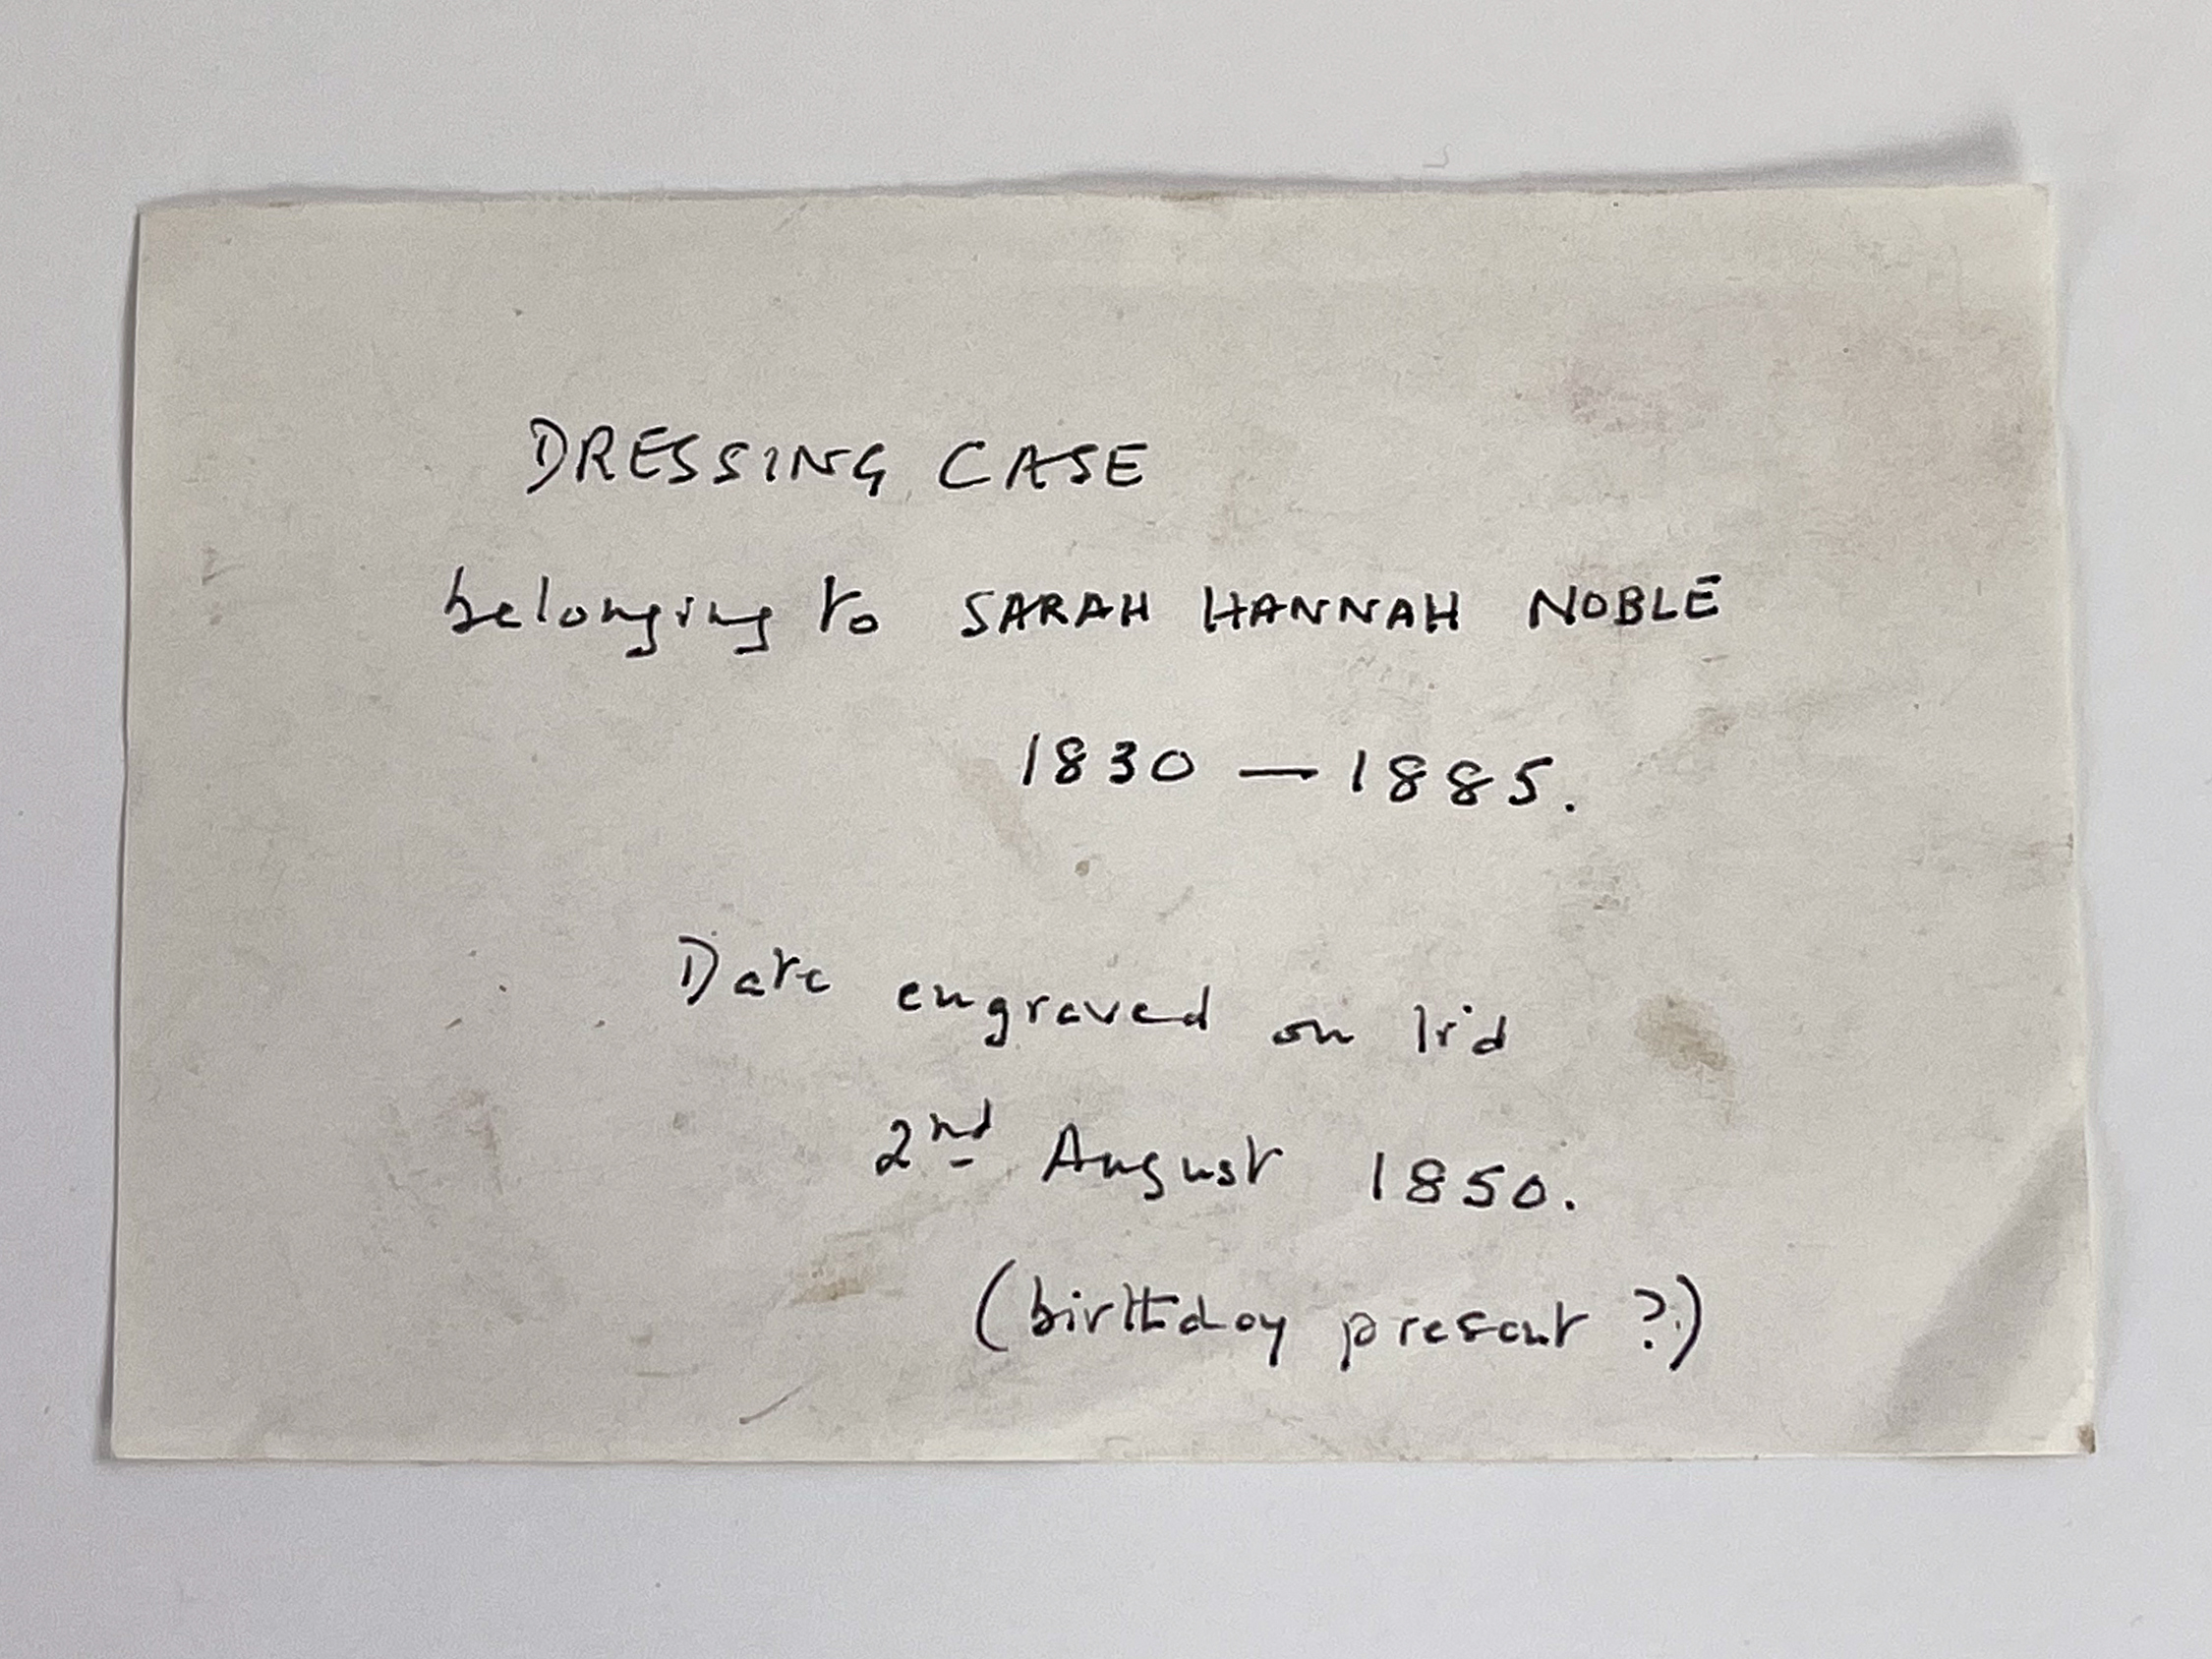 DRESSING CASE
belonging to SARAH HANNAH NOBLE
1830 — 1885.
Date engraved on lid
2nd August 1850.
(birthday present ?)